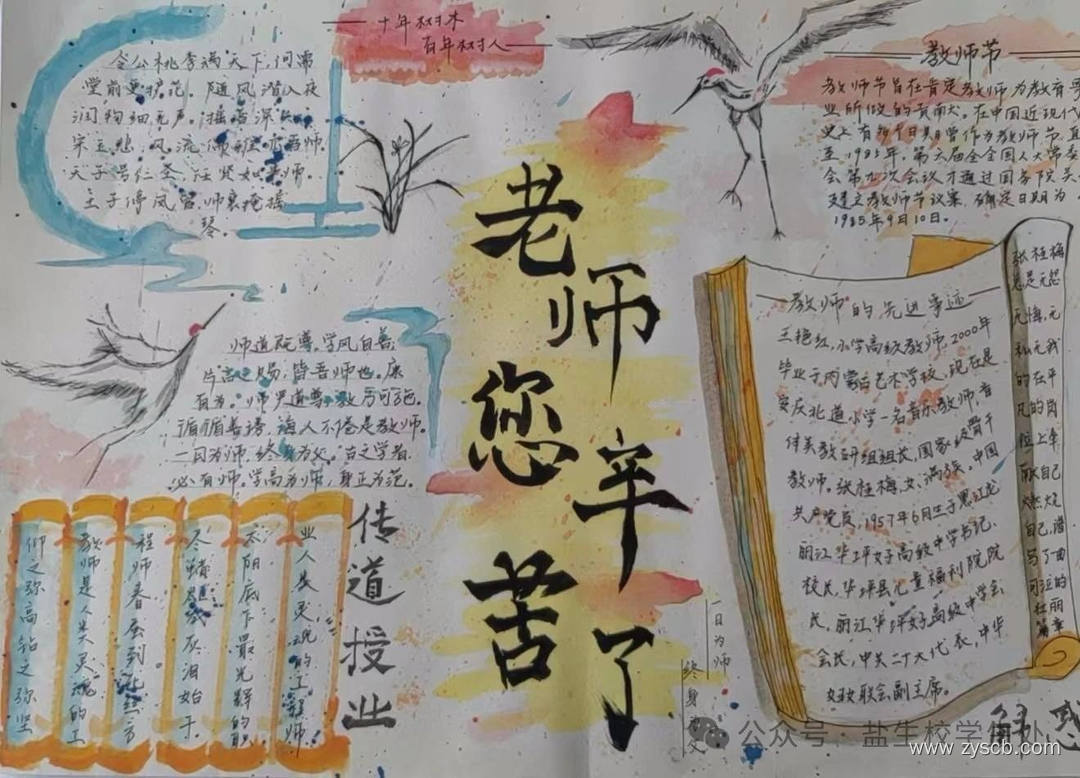 十年树木
百年树人
令公桃李满天下,何需
堂前更种花。随风潜入夜
润物细无声。摇落深知
宋玉悲,风流儒雅亦吾师。
天子
王子
琴。
教师节
教师节旨在肯定教师为教育事
业所做的贡献。在中国近现代
史上有多个日期曾作为教师节,直
至1985年,第六届全国人大常委
会第九次会议才通过国务院关于
建立教师节议案,确定日期为
1985年9月10日。
老师
您辛
苦了
师道既尊,学风自善。
片言之赐,皆吾师也。康
有为:师
循循善诱,诲人不倦是教师。
一日为师,终身为父。古之学者
必有师。学高为师,身正为范。
教师的先进事迹
王艳红,小学高级教师,2000年
毕业于内蒙古艺术学校,现在是
安庆北道小学一名音乐教师,音
体美教研组组长,国家级骨干
教师。张桂梅,女,满族。中国
共产党员,1957年6月生于黑龙
丽江华坪女子高级中学书记、
校长,华坪县儿童福利院院
长,丽江华坪女子高级中学会
会长,中共二十大代表,中华
妇女联会副主席。
张桂梅
总是无怨
无悔,无
私无我
的在平
凡的岗
位上奉
献自己
燃烧
自己,谱
写了
传道授业
业人类灵魂的工程师
太阳底下最光辉的职
泪始干
程师春蚕到死丝方
教师是人类灵魂的工
仰之弥高钻之弥坚
一日为师
终身为父
解
惑
公众号·盐生校学
www.zyscb.com